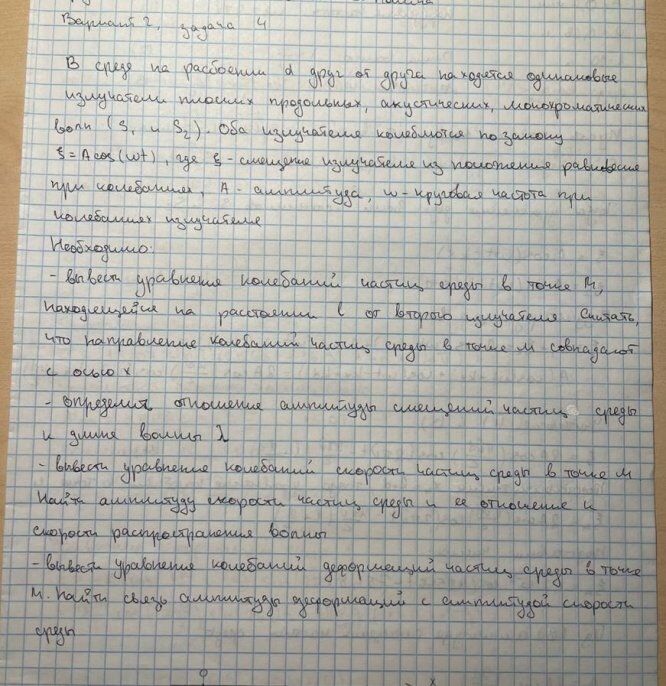 Вариант 2, задача 4
В среде на расстоянии d друг от друга находятся одинаковые
излучатели плоских продольных, акустических, монохроматических
волн (S₁ и S₂). Оба излучателя колеблются по закону
ξ = A cos(ωt), где ξ - смещение излучателя из положения равновесия
при колебаниях, A - амплитуда, ω - круговая частота при
колебаниях излучателя
Необходимо:
- вывести уравнение колебаний частиц среды в точке М,
находящейся на расстоянии l от второго излучателя Считать,
что направление колебаний частиц среды в точке М совпадают
с осью х
- определить отношение амплитуды смещений частиц среды
к длине волны λ
- вывести уравнение колебаний скорости частиц среды в точке М
Найти амплитуду скорости частиц среды и ее отношение к
скорости распространения волны
- вывести уравнение колебаний деформаций частиц среды в точке
М. Найти связь амплитуды деформаций с амплитудой скорости
среды